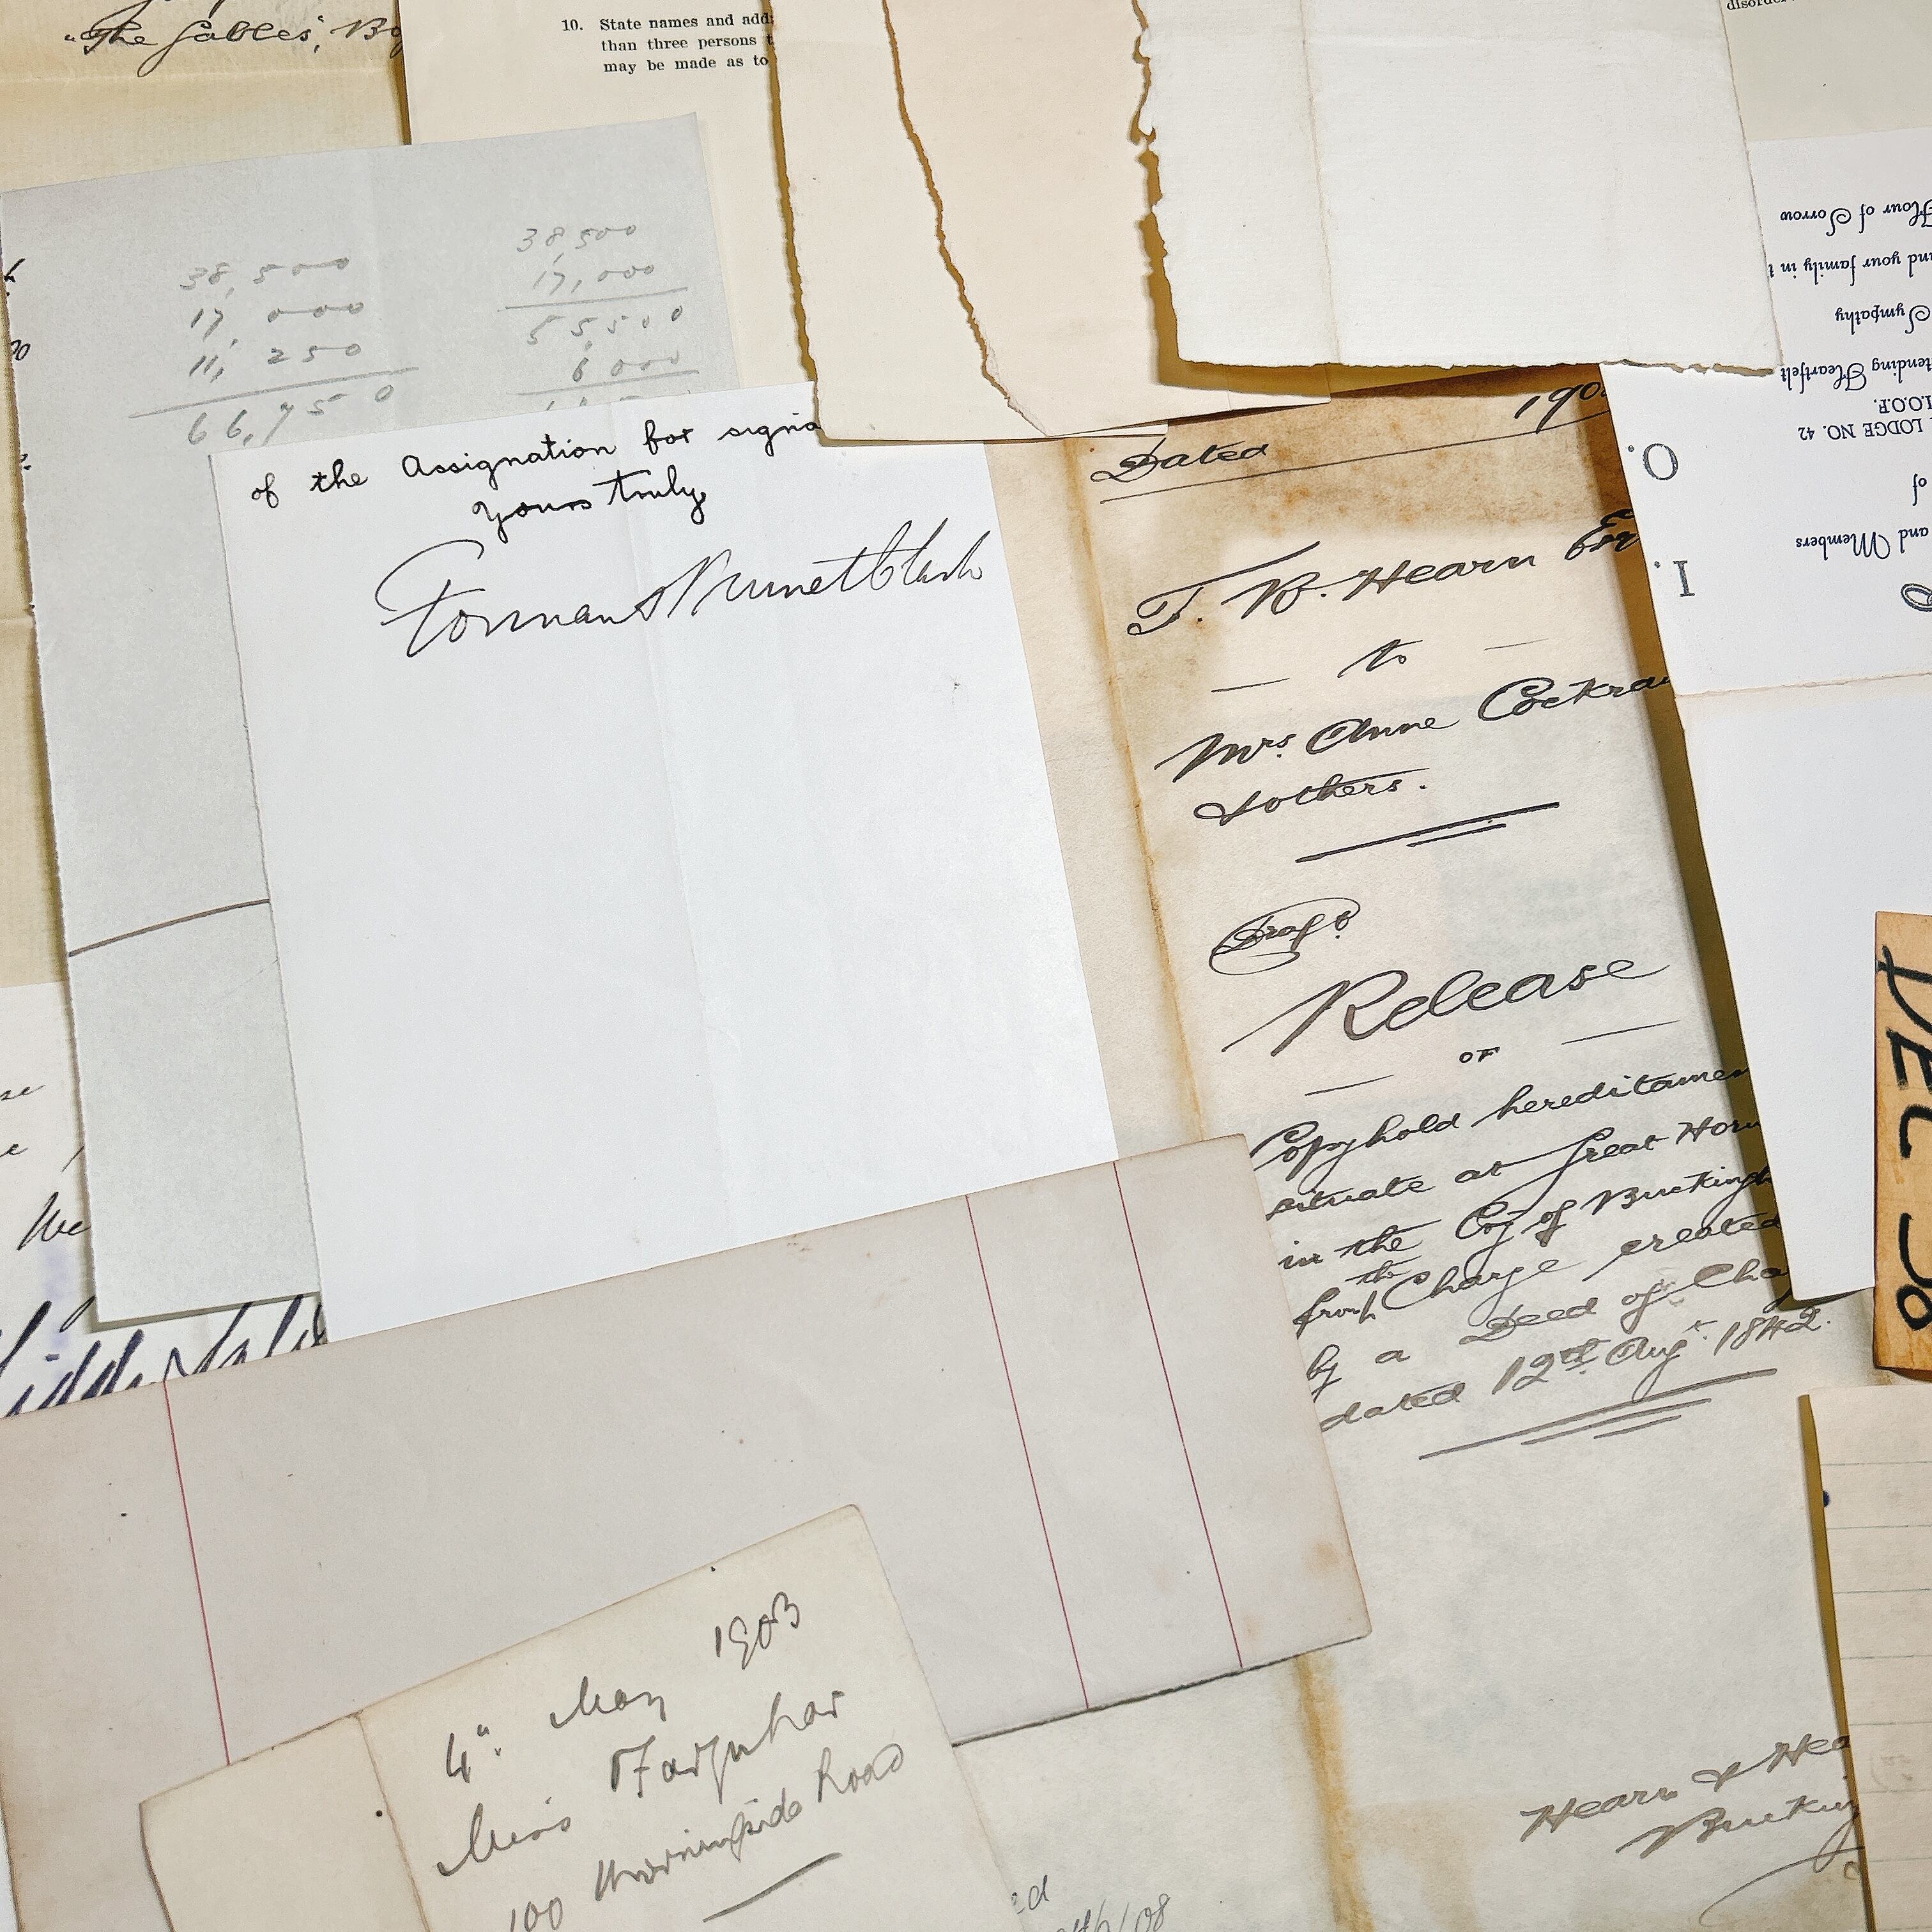 "The Gables",
10. State names and add
than three persons t
may be made as to
disorde
38,500
17,000
11,250
66,750
38,500
17,000
55,500
6 000
of the Assignation for signa
Yours truly,
Dated 190
T. B. Hearn Esq
to
Mrs. Anne Cockra
& others.
Draft
Release
OF
Copyhold hereditamen
situate at Great Horw
in the Coy of Buckingh
from the Charge created
by a Deed of Cha
dated 12th Augt. 1842.
Hearn & Hea
Bucking
and Members
of
LODGE NO. 42
I.O.O.F.
tending Heartfelt
Sympathy
nd your family in t
Hour of Sorrow
I. O.
DEC
We
4". May 1903
Miss Farquhar
100 Morningside Road
ed
/08